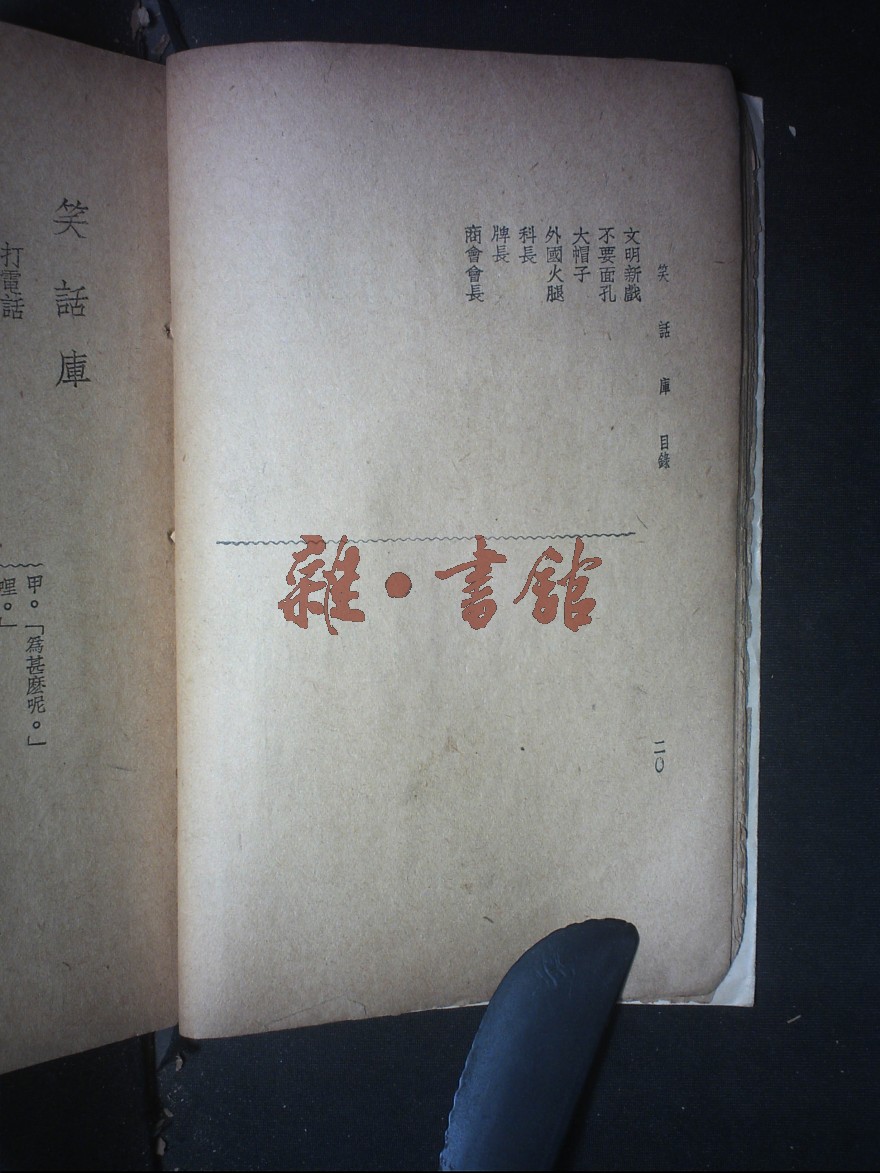 笑話庫 目錄
二〇
文明新戲
不要面孔
大帽子
外國火腿
科長
牌長
商會會長
雜·書館
笑話庫
打電話
甲。「爲甚麽呢。」
哩。」